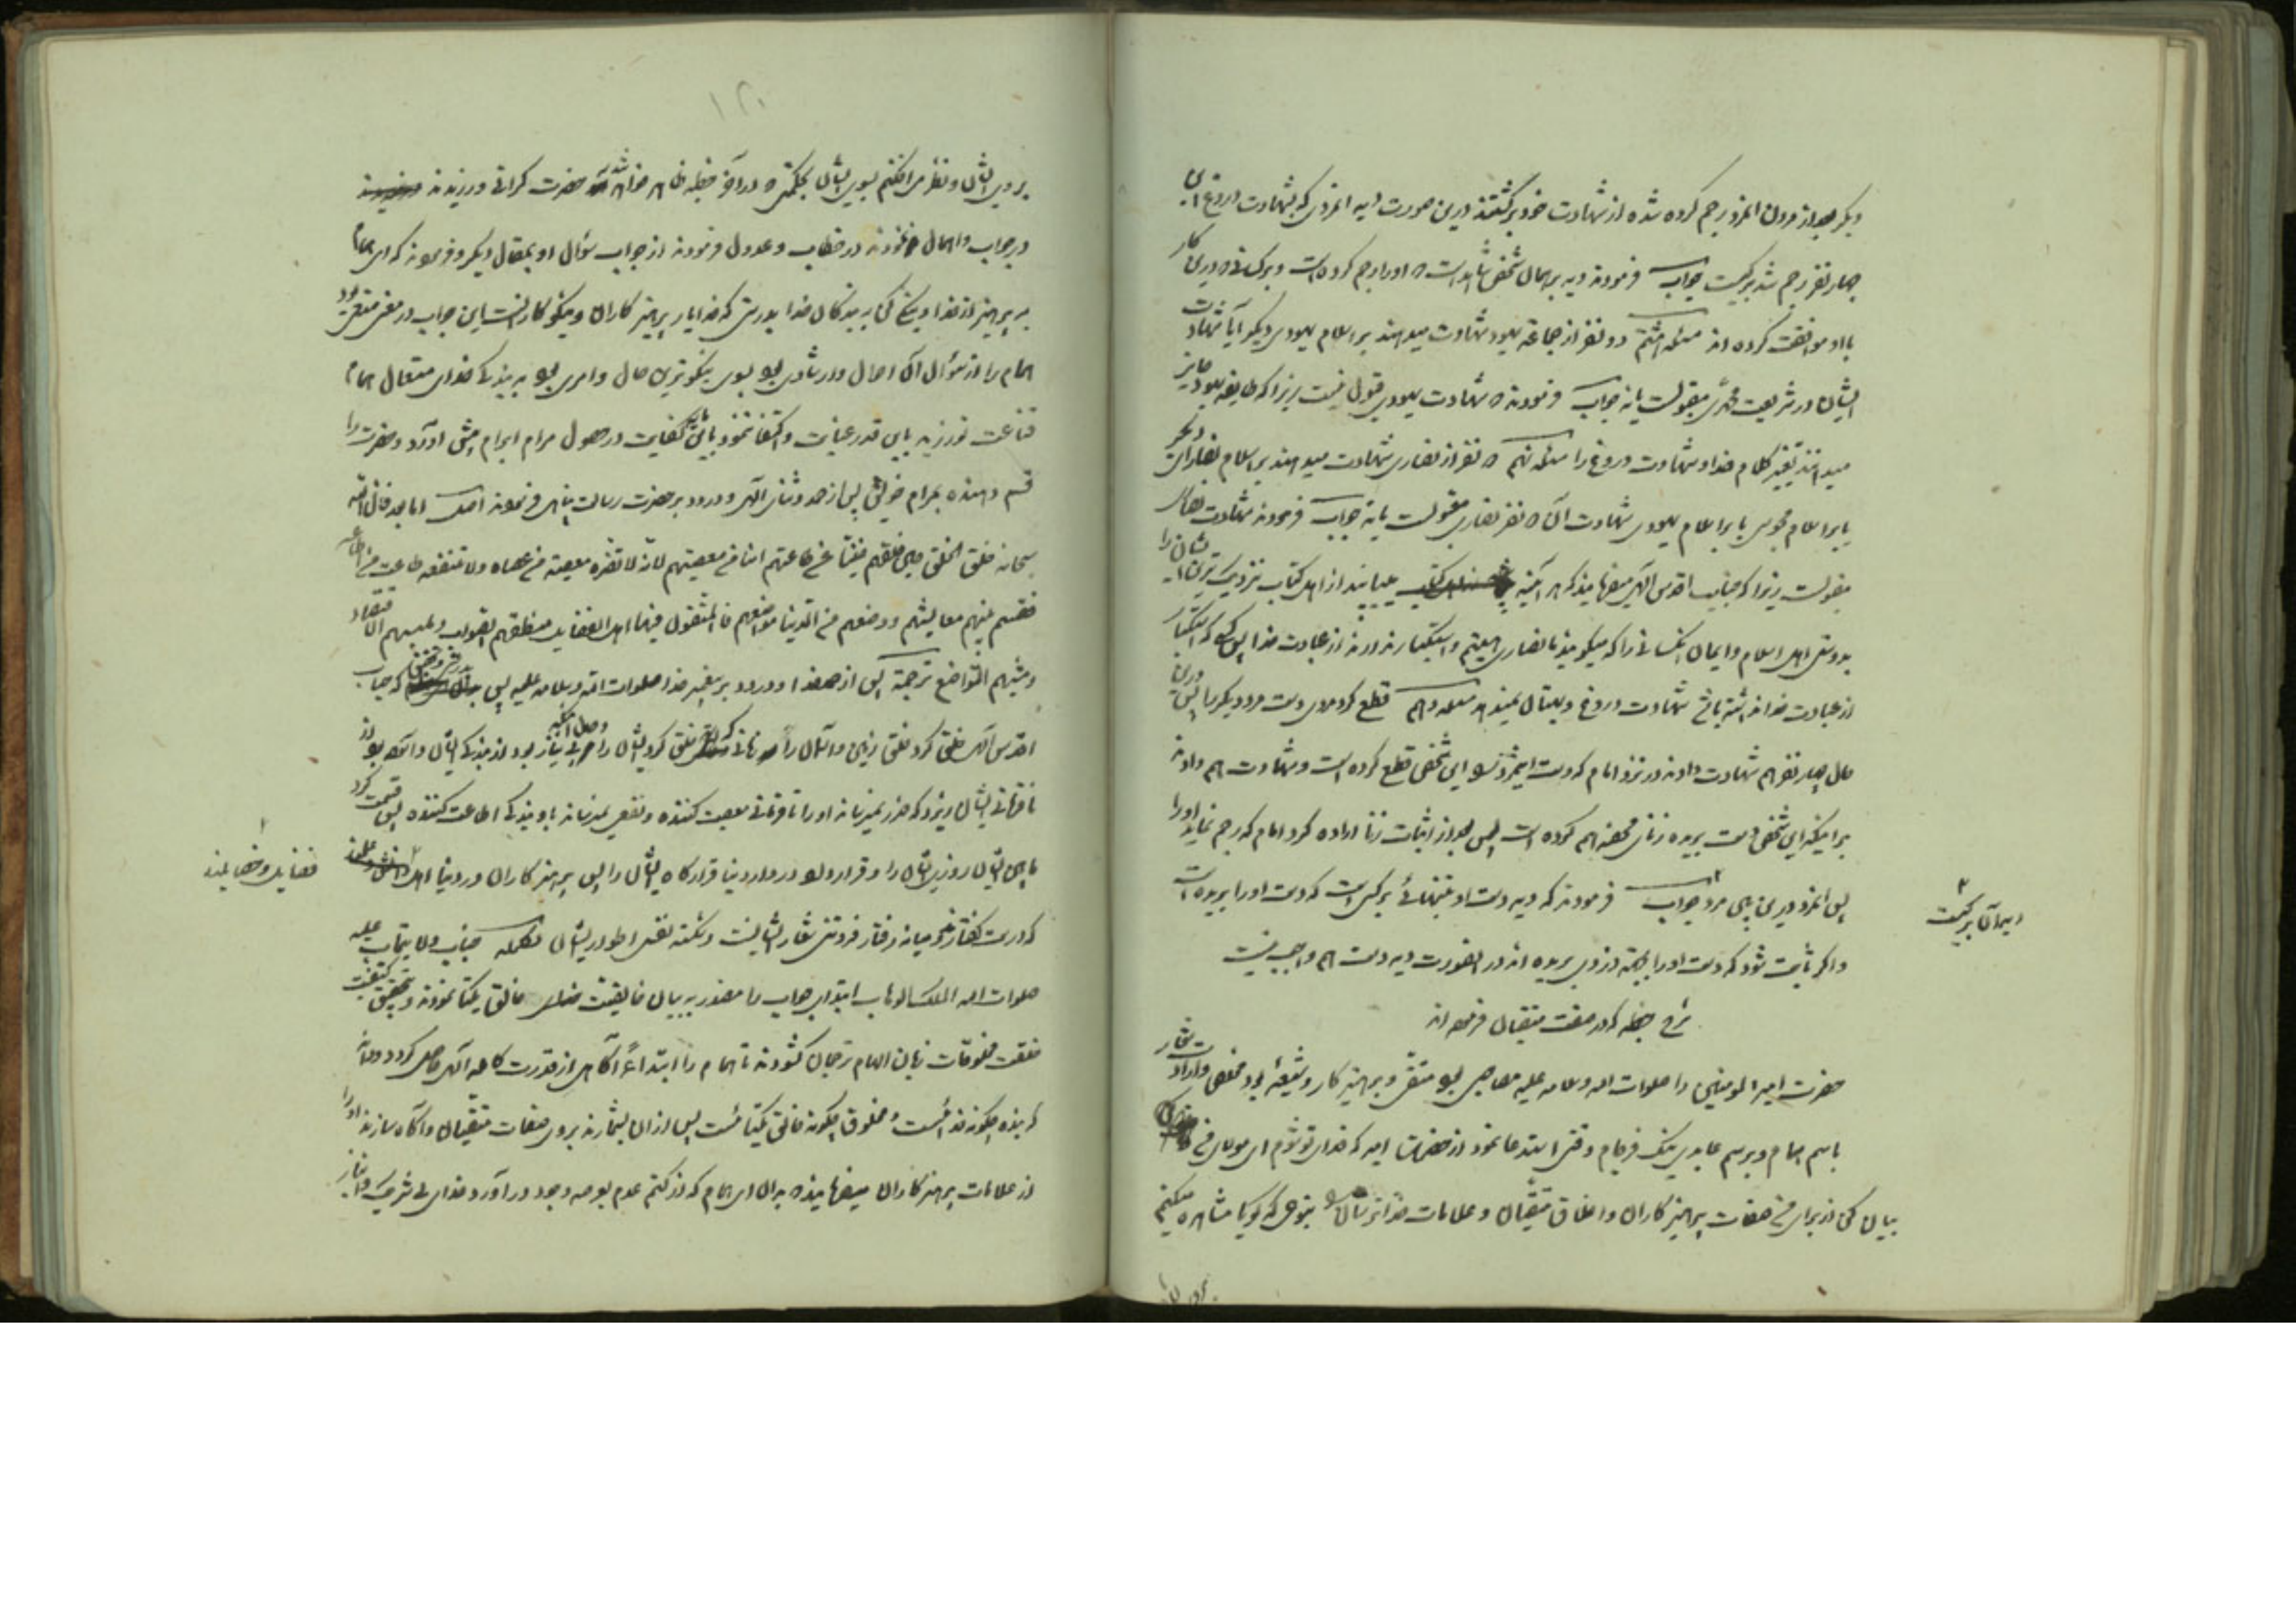 دیگر بعد از مردن انمرد برجم کرده شده از شهادت خود برگشتند درین صورت دیه انمردی که بشهادت دروغ این
چهار نفر رجم شد بر کیست جواب فرمودند دیه بر همان شخص شاهد است که او را رجم کرده است و بر کسانی که درین کار
با او موافقت کرده اند مسئله هشتم دو نفر از جماعة یهود شهادت میدهند بر اسلام یهودی دیگر آیا شهادت
ایشان در شریعت محمدی مقبولست یا نه جواب فرمودند که شهادت یهودی قبول نیست زیرا که طایفه یهود جایز
میدانند تغییر کلام خدا و شهادت دروغ را مسئله نهم دو نفر از نصاری شهادت میدهند بر اسلام نصارای دیگر
یا بر اسلام مجوس یا بر اسلام یهودی شهادت آن دو نفر نصاری مقبولست یا نه جواب فرمودند شهادت نصاری
مقبولست زیرا که جناب اقدس الهی میفرماید که هر آینه میابید از اهل کتاب نزدیک ترین ایشان را
بدوستی اهل اسلام و ایمان آنکسانی را که میگویند ما نصاری هستیم و استکبار ندارند از عبادت خدا پس کسی که استکبار
از عبادت خدا نداشته باشد شهادت دروغ و بهتان نمیدهد مسئله دهم قطع کرد مردی دست مرد دیگر را پس درین
حال چهار نفر هم شهادت دادند در نزد امام که دست اینمرد را این شخص قطع کرده است و شهادت هم دادند
بر اینکه این شخص دست بریده زنای محصنه هم کرده است پس بعد از اثبات زنا اراده کرد امام که رجم نماید او را
پس انمرد درین بین مرد جواب فرمودند که دیه دست او بتنهائی بر کسی است که دست او را بریده است
و اگر ثابت شود که دست او را بجهة دزدی بریده اند در انصورت دیه دست هم واجب نیست
دیه آن بر کیست
شرح خطبه که در صفت متقیان فرموده اند
حضرت امیر المومنین را صلوات الله و سلامه علیه مصاحبی بود متقی و پرهیز کار و شیعهٔ بود مخلص و ارادت شعار
باسم همام و برسم عابدی نیک فرجام وقتی استدعا نمود از حضرت امیر که فدای تو شوم ای مولای من
بیان کن از برای من صفات پرهیز کاران و اخلاق متقیان و علامات خدا ترسان را بنوعی که گویا مشاهده میکنم
۱۲۰
بروی ایشان و نظر می افکنم بسوی ایشان بحکمتی که در آخر خطبه ظاهر خواهد شد حضرت گرانی ورزیدند
در جواب و اهمال نمودند در خطاب و عدول فرمودند از جواب سؤال او بمقال دیگر و فرمودند که ای همام
به پرهیز از خدا و نیکی کن به بندگان خدا بدرستی که خدا یار پرهیز کاران و نیکو کارانست این جواب در معنی منعی بود
همام را از سؤال آن احوال و ارشادی بود بسوی نیکوترین حال و امری بود به بندگی خدای متعال همام
قناعت نورزید باین قدر عنایت و اکتفا ننمود باین کفایت در حصول مرام ابرام پیش آورد و حضرت را
قسم دهنده بمرام خویش پس از حمد و ثنای الهی و درود بر حضرت رسالت پناهی فرمودند اصل اما بعد فان الله
سبحانه خلق الخلق حین خلقهم غنیا عن طاعتهم امنا من معصیتهم لانه لا تضره معصیة من عصاه ولا تنفعه طاعت من اطاعه
فقسم بینهم معایشهم و وضعهم من الدنیا مواضعهم فالمتقون فیها اهل الفضایل منطقهم الصواب و ملبسهم الاقتصاد
و مشیهم التواضع ترجمة پس از حمد خدا و درود بر پیغمبر خدا صلوات الله و سلامه علیه پس بدرستی و تحقیق که جناب
اقدس الهی خلق کرد خلق زمین و آسمان را زمانی که خلق کرد ایشان را و حال آنکه بی نیاز بود از بندگی ایشان و آسوده بود از
نافرمانی ایشان زیرا که ضرر نمیرساند او را نافرمانی معصیت کننده و نفعی نمیرساند باو بندگی اطاعت کننده پس قسمت کرد
مابین ایشان روزی ایشان را و قرار داد در دار دنیا قرارگاه ایشان را پس پرهیز کاران در دنیا اهل
فضایل و خصایلند
که درست گفتاری و میانه رفتار فروتنی شعار ایشانست و شکسته نفسی اطوار ایشان تکمله جناب ولایتمآب علیه
صلوات الله الملک الوهاب ابتدای جواب را مصدر به بیان خالقیت خالق یکتا نمودند و بتحقیق کیفیت
خلقت مخلوقات زبان الهام ترجمان گشودند تا همام را ابتداءً آگاهی از قدرت کامله الهی حاصل گردد و بداند
که بنده چگونه خدائیست و مخلوق چگونه خالق یکتائیست پس از ان بشمارند بروی صفات متقیان و آگاه سازند او را
از علامات پرهیز کاران میفرمایند که بدان ای همام که از کتم عدم بعرصه وجود در آورد خدای بی شریک و انباز